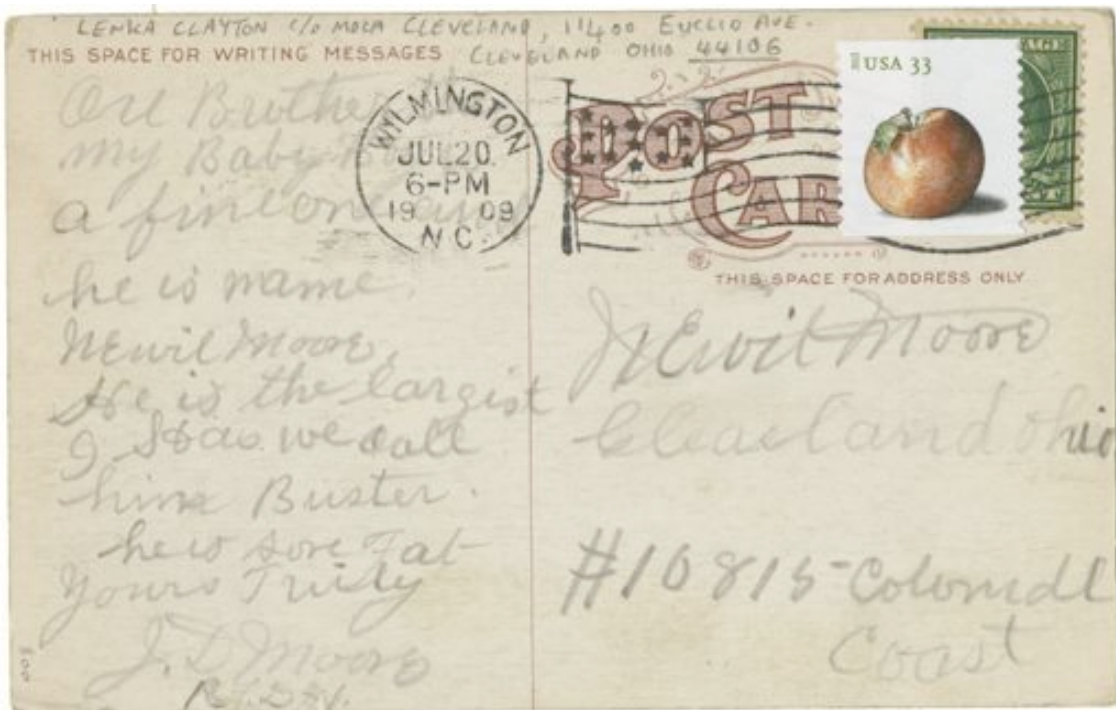 LENKA CLAYTON C/O MOCA CLEVELAND, 11400 EUCLID AVE.
CLEVELAND OHIO 44106
THIS SPACE FOR WRITING MESSAGES
WILMINGTON
JUL 20
6-PM
1909
N.C.
POST
CAR
USA 33
THIS SPACE FOR ADDRESS ONLY
Brother
my Baby
a fine one
he is name
Newil Moore,
He is the largist
I we call
him Buster.
he is so Fat
Yours Truly
J. D. Moore
Newil Moore
Ohio
#10815
Coast